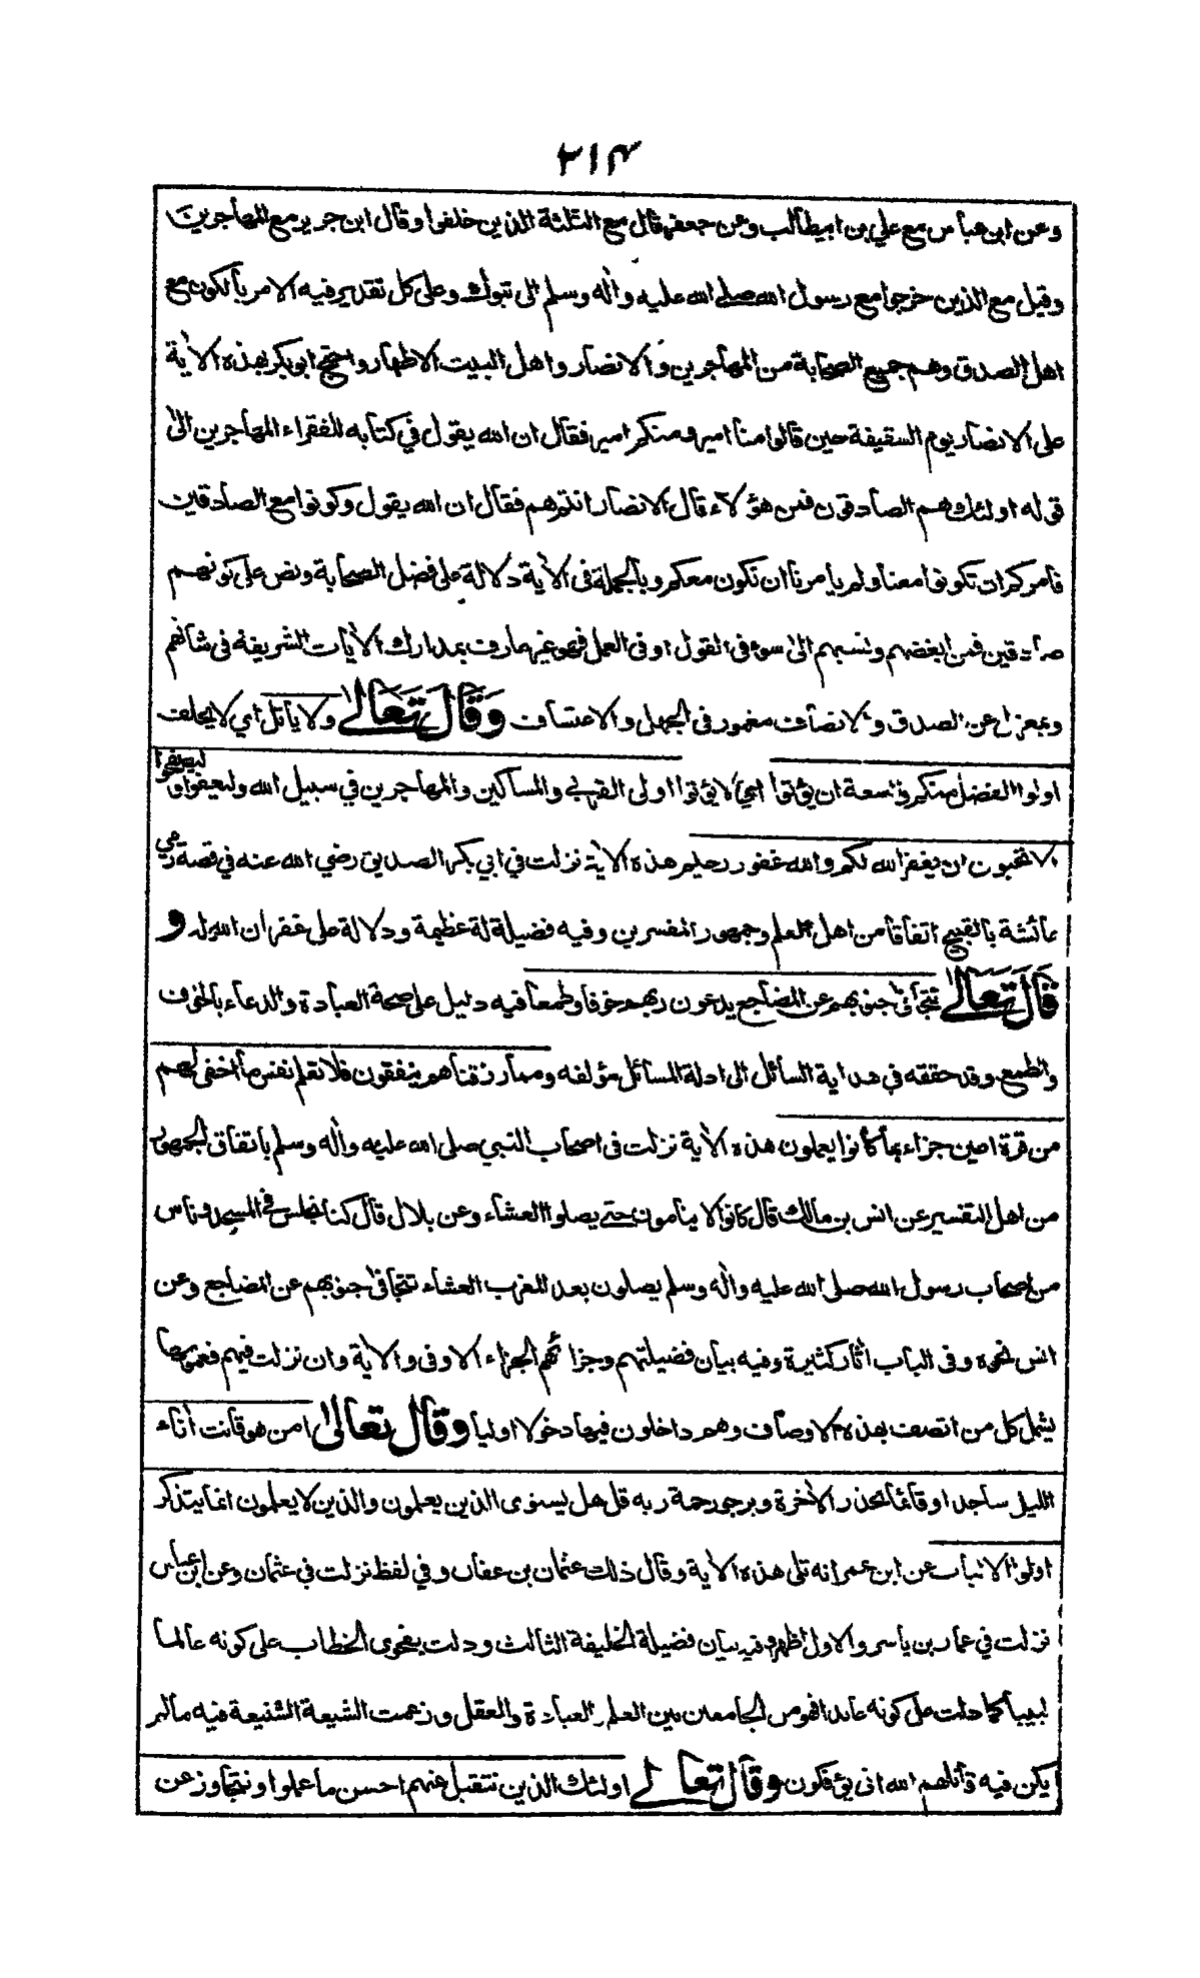 ٣١٤
وعن ابن عباس مع علي بن ابيطالب وعن جعفر قال مع الثلثة الذين خلفوا وقال ابن جرير مع المهاجرين
وقيل مع الذين خرجوا مع رسول الله صلى الله عليه واله وسلم الى تبوك وعلى كل تقدير فيه الامر بالكون مع
اهل الصدق وهم جميع الصحابة من المهاجرين والانصار واهل البيت الاطهار واحتج ابو بكر بهذه الاية
على الانصار يوم السقيفة حين قالوا منا امير ومنكم امير فقال ان الله يقول في كتابه للفقراء المهاجرين الى
قوله اولئك هم الصادقون فمن هؤلاء قال الانصار انتم هم فقال ان الله يقول وكونوا مع الصادقين
فامركم ان تكونوا معنا ولم يامرنا ان نكون معكم وبالجملة في الاية دلالة على فضل الصحابة ونص على كونهم
صادقين فمن ابغضهم ونسبهم الى سوء في القول او في العمل فهو غير عارف بمدارك الايات الشريفة في شانهم
وبمعزل عن الصدق والانصاف مغمور في الجهل والاعتساف وَقَالَ تَعَالىٰ ولا يأتل اي لا يحلف
اولوا الفضل منكم والسعة ان يؤتوا اي لا يؤتوا اولى القربى والمساكين والمهاجرين في سبيل الله وليعفوا وليصفحوا
الا تحبون ان يغفر الله لكم والله غفور رحيم هذه الاية نزلت في ابي بكر الصديق رضي الله عنه في قصة رمي
عائشة بالقبيح اتفاقا من اهل العلم وجمهور المفسرين وفيه فضيلة له عظيمة ودلالة على غفران الله له و
قَالَ تَعَالىٰ تتجافى جنوبهم عن المضاجع يدعون ربهم خوفا وطمعا فيه دليل على صحة العبادة والدعاء بالخوف
والطمع وقد حققه في هداية السائل الى ادلة المسائل مؤلفه ومما رزقناهم ينفقون فلا تعلم نفس ما اخفى لهم
من قرة اعين جزاء بما كانوا يعملون هذه الاية نزلت في اصحاب النبي صلى الله عليه واله وسلم باتفاق الجمهور
من اهل التفسير عن انس بن مالك قال كانوا لا ينامون حتى يصلوا العشاء وعن بلال قال كنا نجلس في المسجد وناس
من اصحاب رسول الله صلى الله عليه واله وسلم يصلون بعد المغرب العشاء تتجافى جنوبهم عن المضاجع وعن
انس نحوه وفي الباب اثار كثيرة وفيه بيان فضيلتهم وجزائهم الجزاء الاوفى والاية وان نزلت فيهم فعمومها
يشمل كل من اتصف بهذه الاوصاف وهم داخلون فيها دخولا اوليا وقال تعالىٰ امن هو قانت اناء
الليل ساجدا وقائما يحذر الاخرة ويرجو رحمة ربه قل هل يستوى الذين يعلمون والذين لا يعلمون انما يتذكر
اولوا الالباب عن ابن عمر انه تلى هذه الاية وقال ذلك عثمان بن عفان وفي لفظ نزلت في عثمان وعن ابن عباس
نزلت في عمار بن ياسر والاول اظهر وفيه بيان فضيلة الخليفة الثالث ودلت بفحوى الخطاب على كونه عالما
لبيبا كما دلت على كونه عابدا فهو من الجامعين بين العلم والعبادة والعقل وزعمت الشيعة الشنيعة فيه مالم
يكن فيه قاتلهم الله انى يؤفكون وقال تعالے اولئك الذين نتقبل عنهم احسن ما عملوا ونتجاوز عن